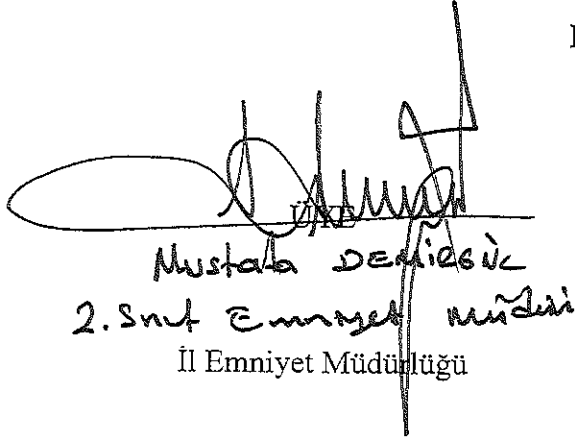 ÜYE
Mustafa DEMİRGÜÇ
2. Sınıf Emniyet Müdürü
İl Emniyet Müdürlüğü